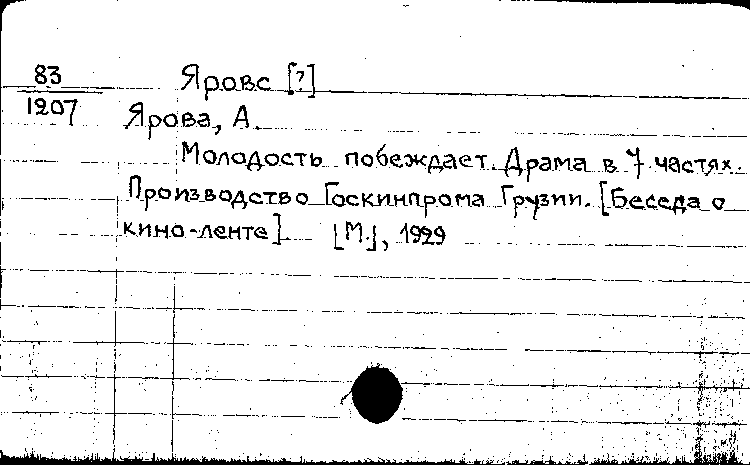 83 Яровс [?]
1207 Ярова, А.
Молодость побеждает. Драма в 7 частях.
Производство Госкинпрома Грузии. [Беседа о
кино-ленте]. [М.], 1929